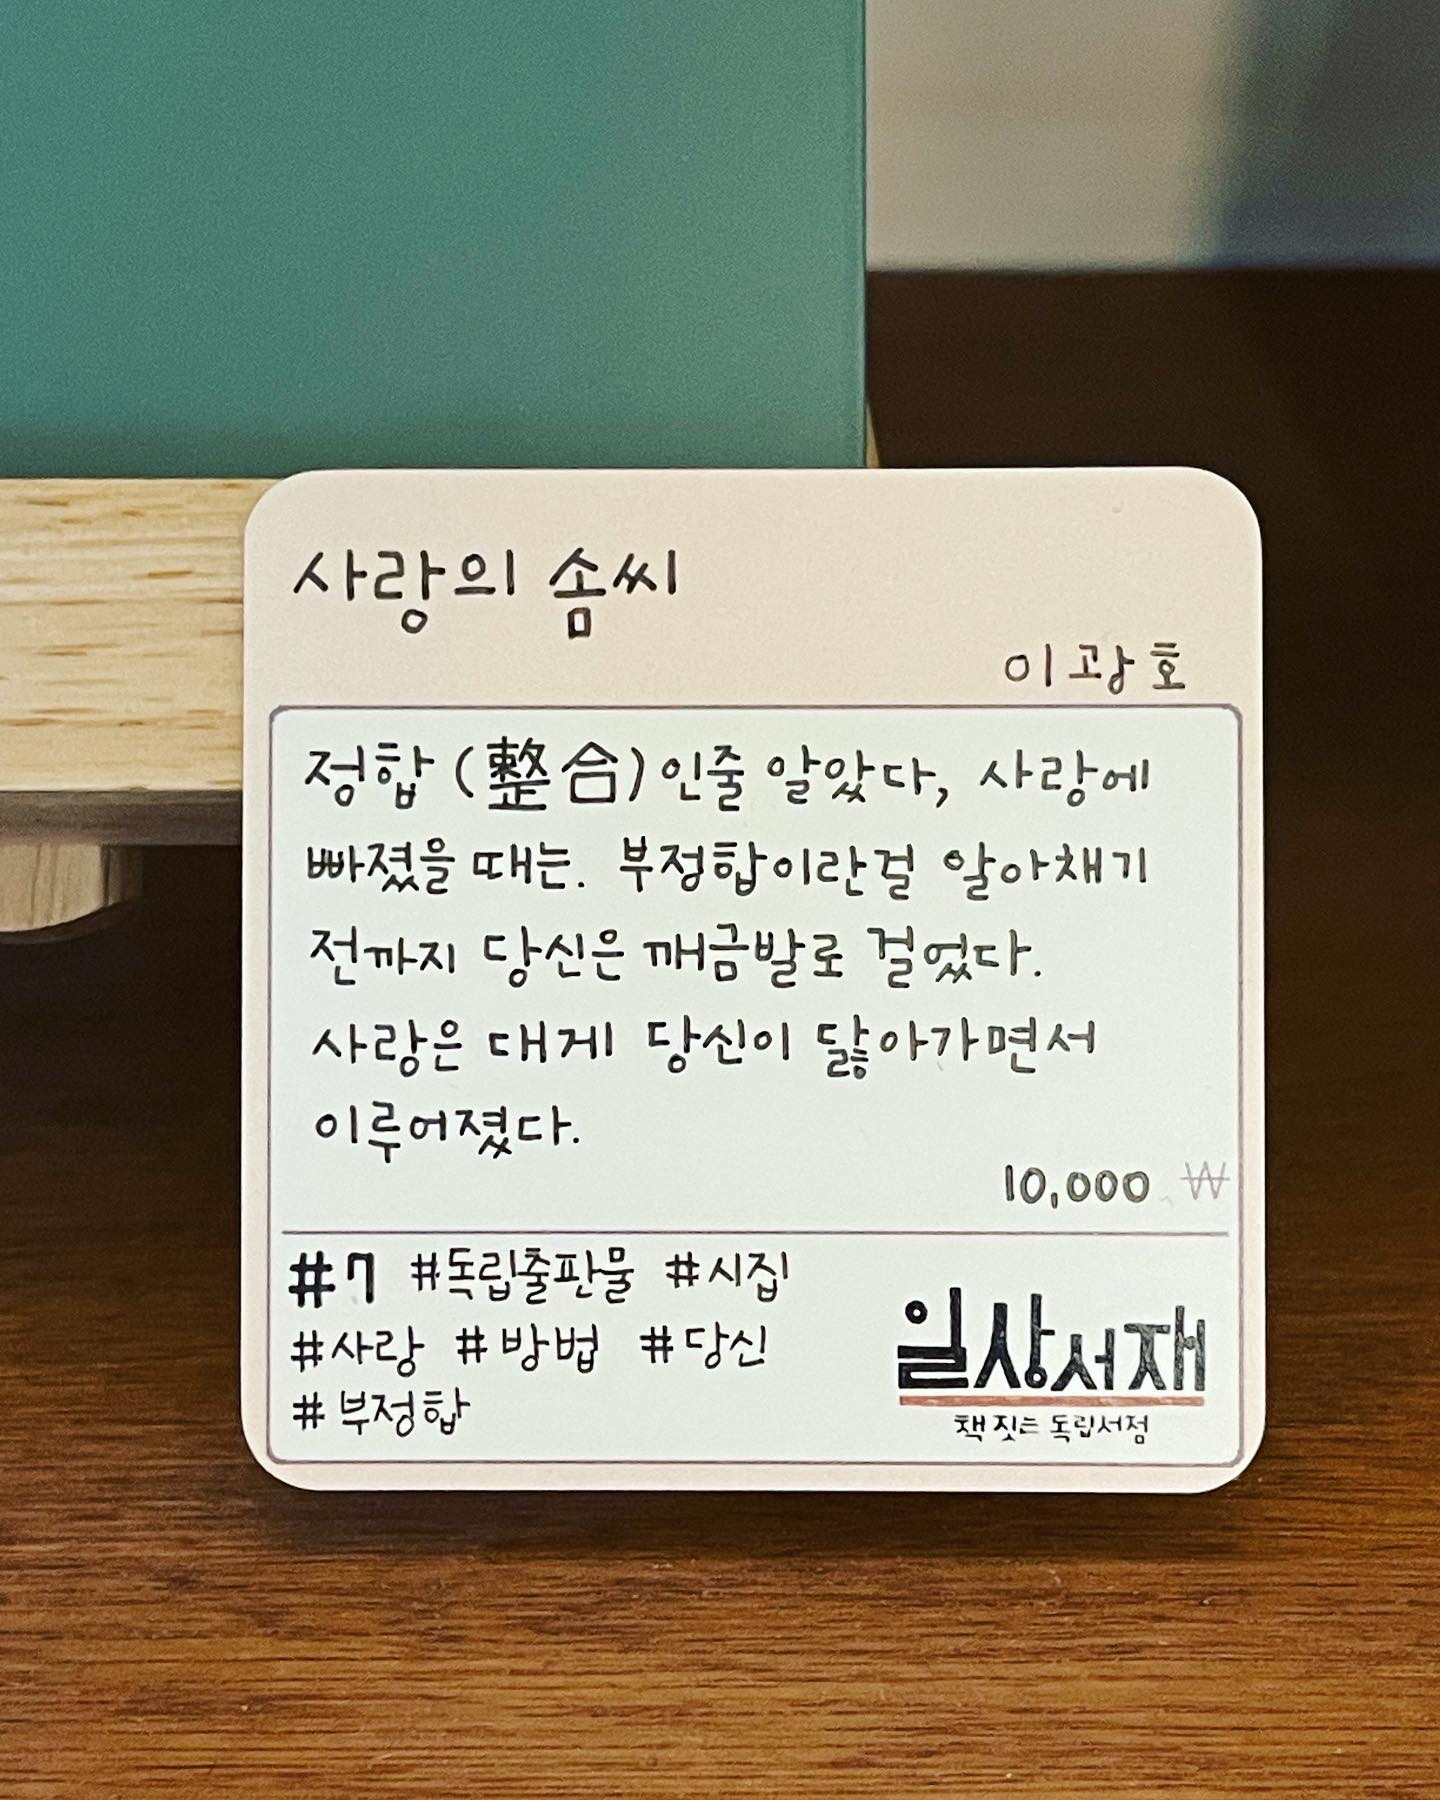 사랑의 솜씨
이광호
정합(整合)인줄 알았다, 사랑에
빠졌을 때는. 부정합이란걸 알아채기
전까지 당신은 깨금발로 걸었다.
사랑은 대게 당신이 닳아가면서
이루어졌다.
10,000 ₩
#7 #독립출판물 #시집
#사랑 #방법 #당신
#부정합
일상서재
책 짓는 독립서점